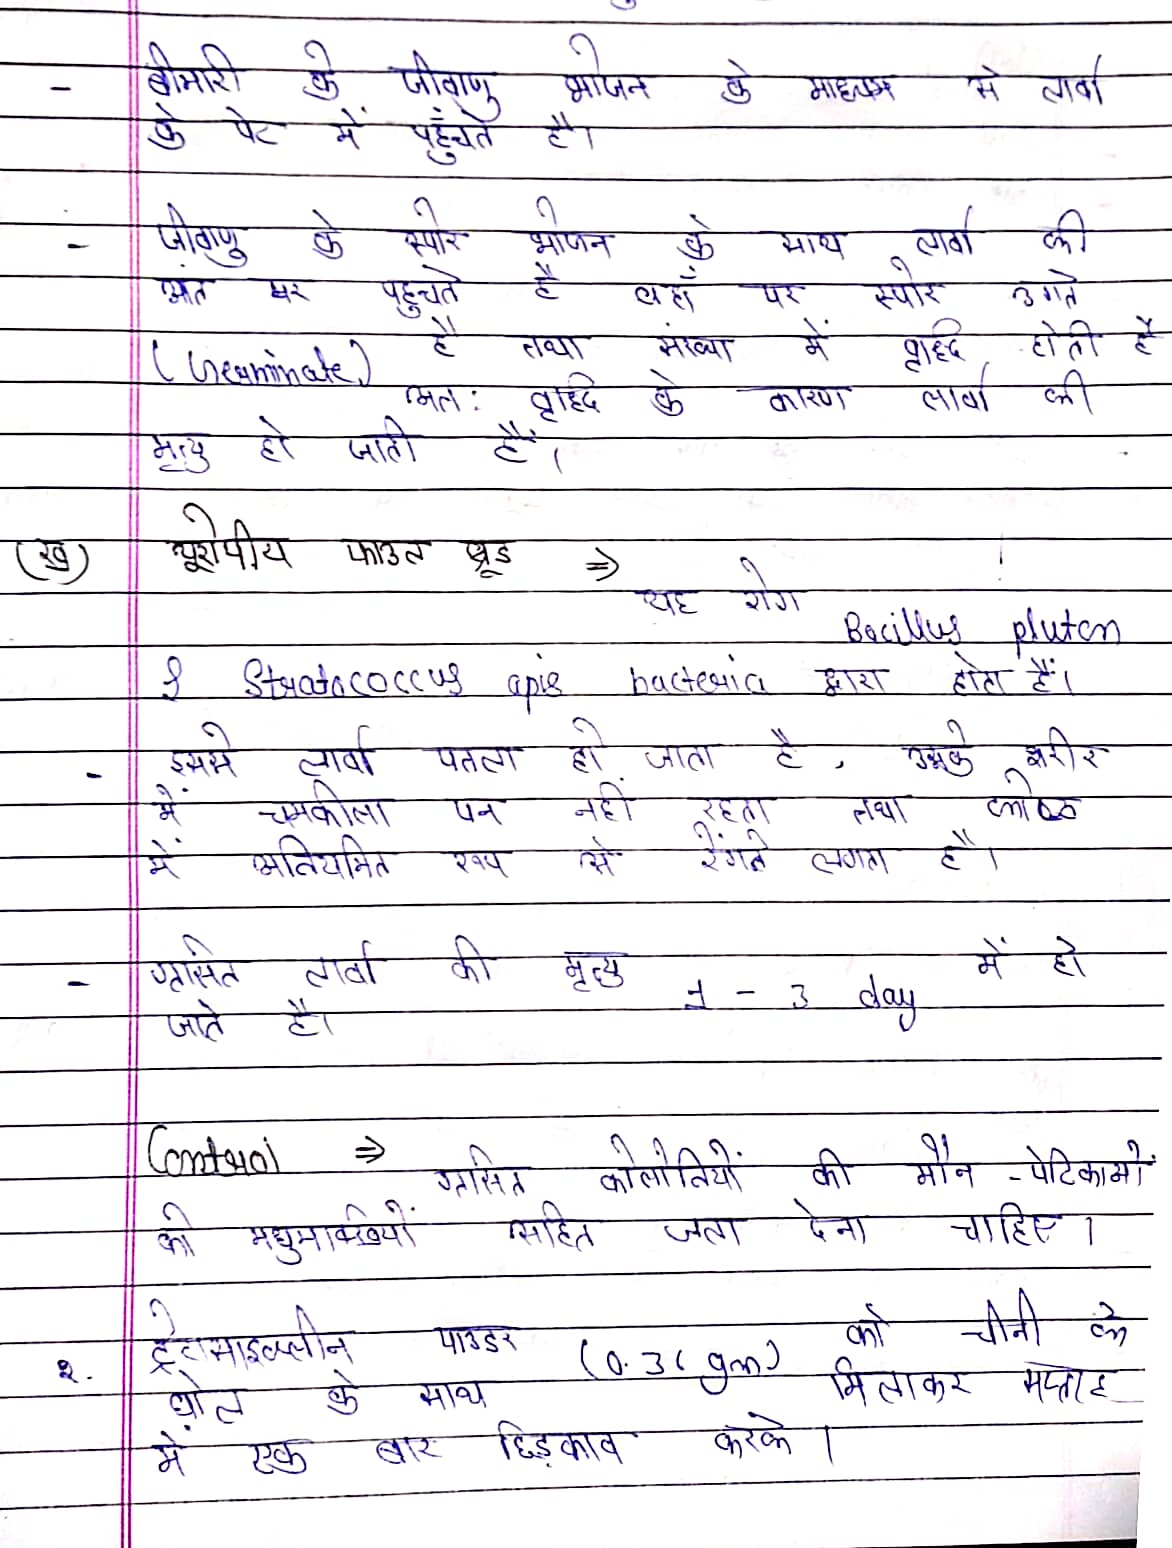 - बीमारी के जीवाणु भोजन के माध्यम से लार्वा
के पेट में पहुँचते है।
- जीवाणु के स्पोर भोजन के साथ लार्वा की
आंत पर पहुचते है वहाँ पर स्पोर उगते
(Germinate) है तथा संख्या में वृद्दि होती है
अत: वृद्दि के कारण लार्वा की
मृत्यु हो जाती हैं।
(ख) यूरोपीय फाउल ब्रूड ⇒
यह रोग Bacillus pluton
& Stratococcus apis bacteria द्वारा होता हैं।
- इससे लार्वा पतला हो जाता है, उसके शरीर
में चमकीला पन नहीं रहता तथा कोष्ठ
में अनियमित रूप से रेंगने लगता है।
- ग्रसित लार्वा की मृत्यु 1 - 3 day में हो
जाते है।
Control ⇒ ग्रसित कोलोनियों की मौन -पेटिकाओं
को मधुमक्खियों सहित जला देना चाहिए।
२. ट्रेटासाइक्लीन पाउडर (0.3 gm) को चीनी के
घोल के साथ मिलाकर सप्ताह
में एक बार छिड़काव करके।